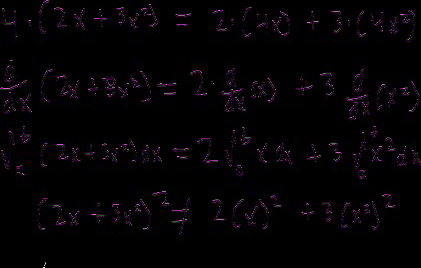 4·(2x + 3x²) = 2·(4x) + 3·(4x²)
d/dx (2x + 3x²) = 2·d/dx(x) + 3 d/dx(x²)
∫ₐᵇ (2x+3x²)dx = 2∫ₐᵇ x dx + 3∫ₐᵇ x² dx
(2x + 3x²)² ≠ 2(x)² + 3(x²)²